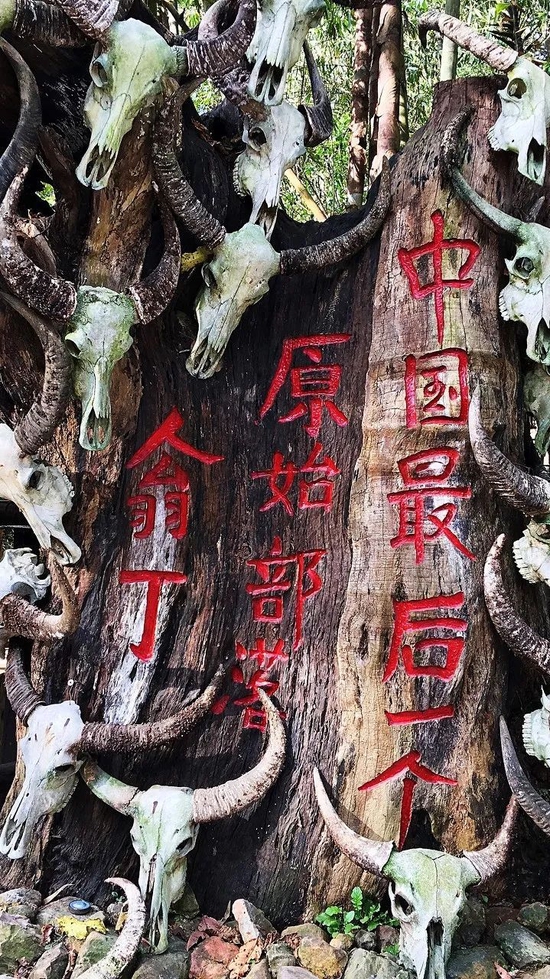 中国最后一个
原始部落
翁丁